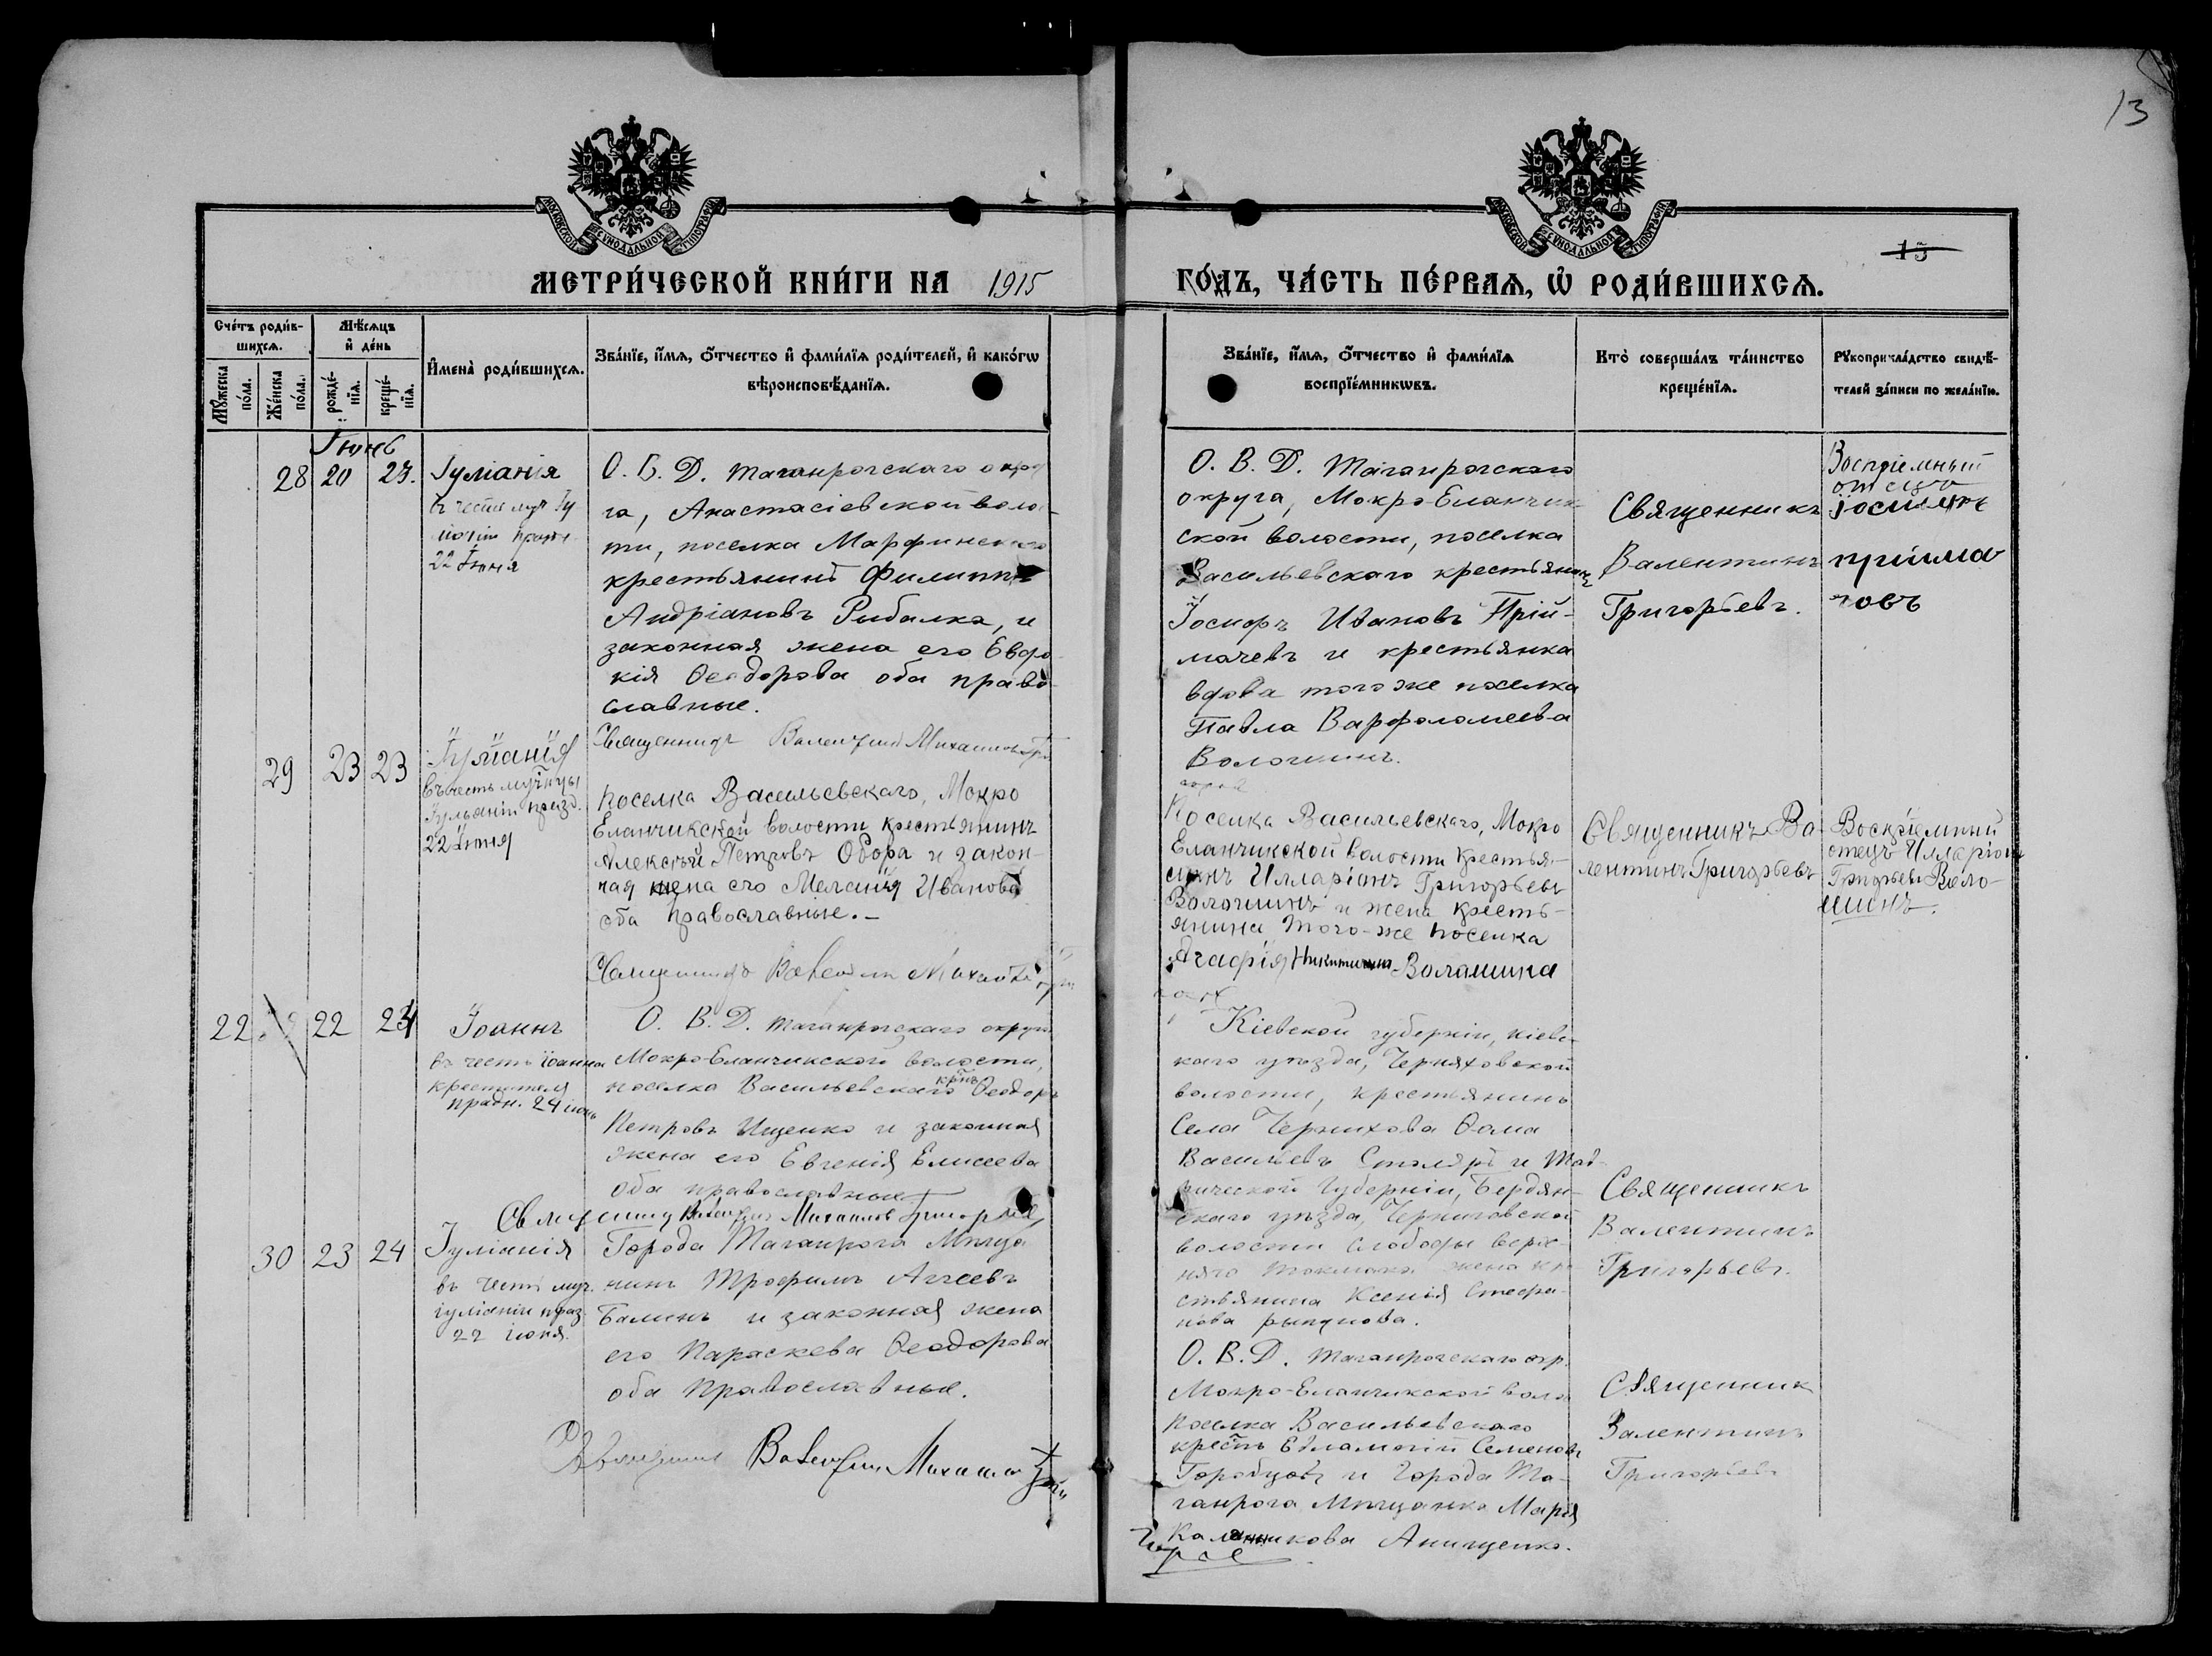 13
МОСКОВСКОЙ СѴНОДАЛЬНОЙ ТИПОГРАФІИ
МОСКОВСКОЙ СѴНОДАЛЬНОЙ ТИПОГРАФІИ
15
МЕТРИ́ЧЕСКОЙ КНИ́ГИ НА 1915
ГО́ДЪ, ЧА́СТЬ ПЕ́РВАѦ, Ѡ҆ РОДИ́ВШИХСѦ.
Сче́тъ роди́в-
шихсѧ.
Мѣ́сѧцъ
и҆ де́нь
Мꙋ́жеска
по́ла.
Же́нска
по́ла.
рожде́-
нїѧ.
креще́-
нїѧ.
И҆мена̀ роди́вшихсѧ.
Зва́нїе, и҆́мѧ, ѻ҆́тчество и҆ фами́лїѧ роди́телей, и҆ како́гѡ
вѣроисповѣ́данїѧ.
Зва́нїе, и҆́мѧ, ѻ҆́тчество и҆ фами́лїѧ
воспрїе́мникѡвъ.
Кто̀ соверша́лъ та́инство
креще́нїѧ.
Рꙋкоприкла́дство свидѣ́-
телей за́писи по жела́нїю.
Іюнь
28 20 23. Іуліанія
въ честь муч Іу
22 Іюня
О. В. Д. Таганрогскаго окру
га, Анастасіевской воло-
ти, поселка Марфинскаго
крестьянинъ Филиппъ
Андріановъ Рыбалка, и
законная жена его Евдо
кія Ѳеодорова оба право
славные.
Священникъ Валентинъ Михаиловъ
О. В. Д. Таганрогскаго
округа, Мокро-Еланчик-
ской волости, поселка
Васильевскаго крестьянинъ
Іосифъ Ивановъ Прій-
мачевъ и крестьянка
вдова того же поселка
Павла Варфоломеева
Волошинъ.
Священникъ
Валентинъ
Григорьевъ.
Воспріемный
отецъ
Іосифъ
пріима
човъ
29 23 23 Іуліанія
въ честь муч̃ницы
Іульаніи празд.
22 Іюня
поселка Васельевскаго, Мокро
Еланчикской волости крестьянинъ
Алексѣй Петровъ Обора и закон-
ная жена его Меланія Иванова
оба православные.–
Священникъ Валентинъ Михаиловъ
Поселка Васильевскаго, Мокро
Еланчикской волости крестья-
нинъ Илларіонъ Григорьевъ
Волошинъ и жена кресть-
янина того-же поселка
Агафія Никитина Волошина
Священникъ Ва
лентинъ Григорьевъ
Воспріемный
отецъ Илларіонъ
Григорьевъ Воло-
шинъ.
22 22 24 Іоаннъ
въ честь Іоанна
крестителя
празн. 24 іюнь
О. В. Д. Таганрогскаго округа
Мокро-Еланчикской волости,
поселка Васильевскаго крнъ Ѳеодоръ
Петровъ Ищенко и законная
жена его Евгенія Елисеева
оба православные
Священникъ Валентинъ Михаиловъ Григорьевъ
Кіевской губерніи, Кіевс-
каго уѣзда, Черняховской
волости, крестьянинъ
Села Черняхова Ѳома
Васильевъ Столяръ и Тав-
рической губерніи, Бердян-
скаго уѣзда, Черниговской
волости слободы Верх-
няго Токмака жена кре
стьянина Ксенія Стефа-
нова
Священникъ
Валентинъ
Григорьевъ.
30 23 24 Іуліанія
въ честь муч.
іуліаніи праз
22 іюня.
Города Таганрога Мѣща
нинъ Трофимъ Аггеевъ
Балинъ и законная жена
его Параскева Ѳеодорова
оба православные.
Священникъ Валентинъ Михаиловъ
О. В. Д. Таганрогскаго окр.
Мокро-Еланчикской воло
поселка Васильевскаго
крестнъ Евлампій Семеновъ
Горобцовъ и города Та-
ганрога Мѣщанка Марія
Каланникова Анищенко.
Священник
Валентинъ
Григорьевъ